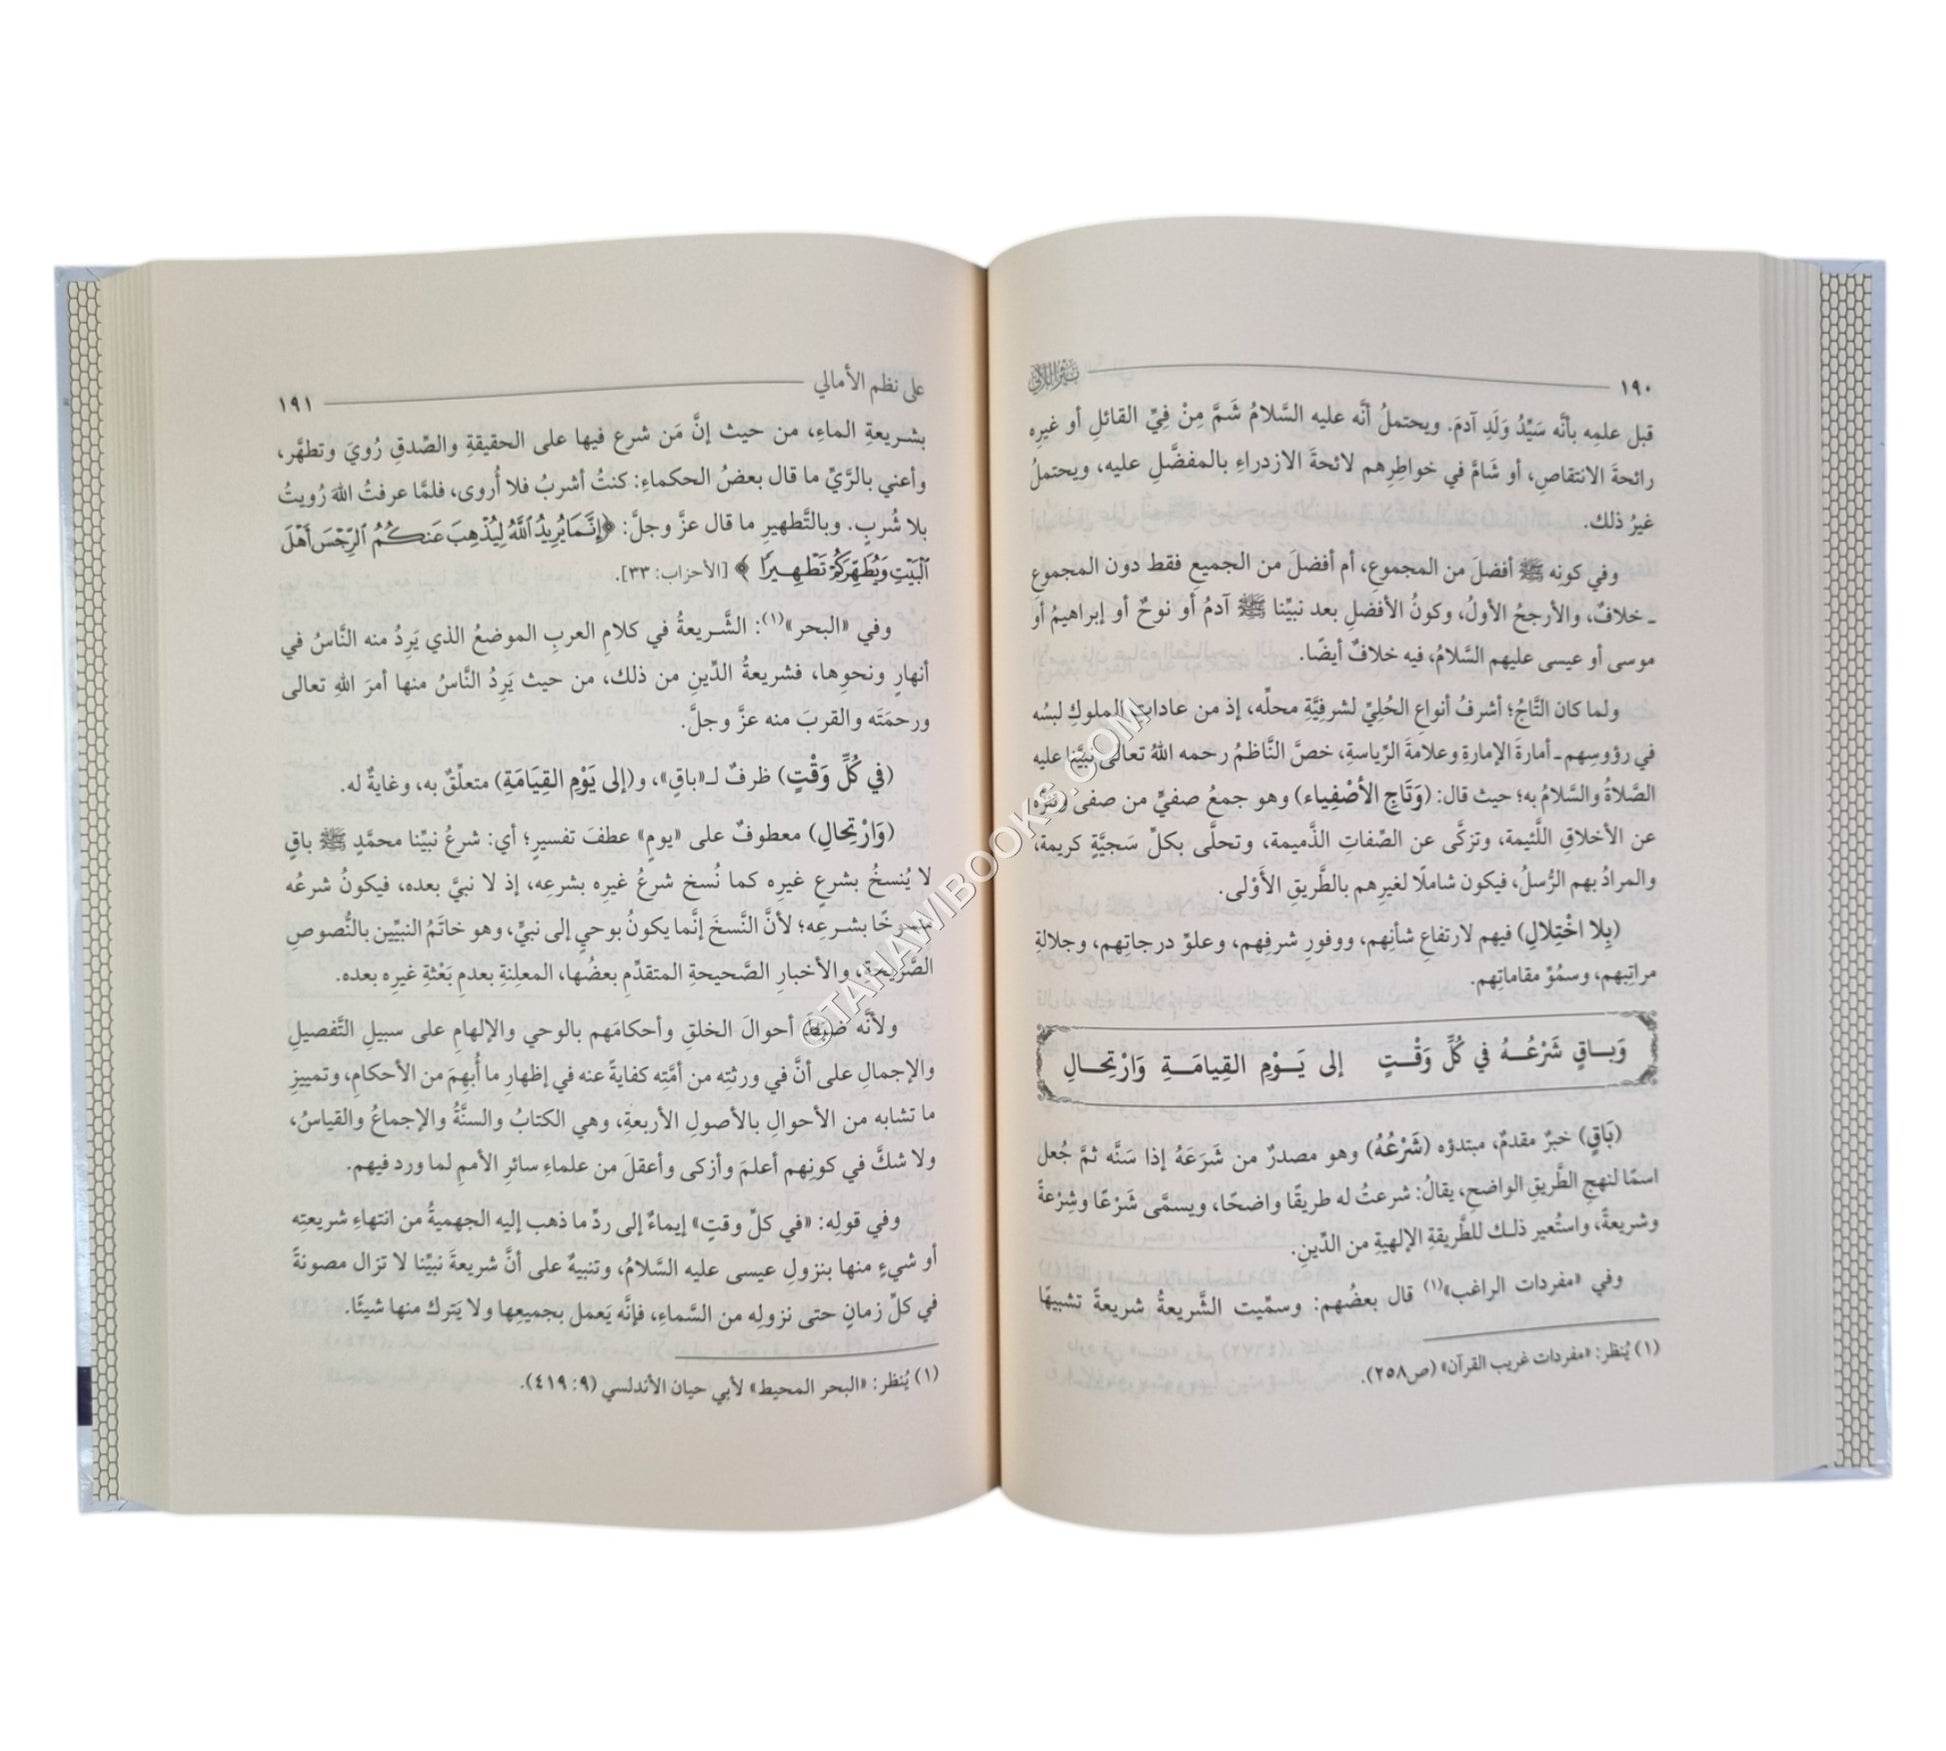 ١٩٠ نثر اللآلي
قبل علمِه بأنَّه سَيِّدُ وَلَدِ آدمَ. ويحتملُ أنَّه عليه السَّلامُ شَمَّ مِنْ فِيِّ القائلِ أو غيرِه
رائحةَ الانتقاصِ، أو شَامَّ في خواطِرِهم لائحةَ الازدراءِ بالمفضَّلِ عليه، ويحتملُ
غيرُ ذلك.
وفي كونِه ﷺ أفضلَ من المجموعِ، أم أفضلَ من الجميعِ فقط دون المجموعِ
ـ خلافٌ، والأرجحُ الأولُ، وكونُ الأفضلِ بعد نبيِّنا ﷺ آدمُ أو نوحٌ أو إبراهيمُ أو
موسى أو عيسى عليهم السَّلامُ، فيه خلافٌ أيضًا.
ولما كان التَّاجُ؛ أشرفُ أنواعِ الحُلِيِّ لشرفِيَّةِ محلِّه، إذ من عاداتِ الملوكِ لبسُه
في رؤوسِهم ـ أمارةَ الإمارةِ وعلامةَ الرِّياسةِ، خصَّ النَّاظمُ رحمه اللهُ تعالى نبيَّنا عليه
الصَّلاةُ والسَّلامُ به؛ حيث قال: (وَتَاجِ الأصْفِياء) وهو جمعُ صفيٍّ من صفى وتنزه
عن الأخلاقِ اللَّئيمة، وتزكَّى عن الصِّفاتِ الذَّميمة، وتحلَّى بكلِّ سَجيَّةٍ كريمة،
والمرادُ بهم الرُّسلُ، فيكون شاملًا لغيرِهم بالطَّريقِ الأَوْلى.
(بِلا اخْتِلالِ) فيهم لارتفاعِ شأنِهم، ووفورِ شرفِهم، وعلوِّ درجاتِهم، وجلالةِ
مراتِبهم، وسمُوِّ مقاماتِهم.
وَبـاقٍ شَرْعُـهُ في كُلِّ وَقْـتٍ إلى يَـوْمِ القِيامَـةِ وَارْتِحـالِ
(بَاقٍ) خبرٌ مقدمٌ، مبتدؤه (شَرْعُهُ) وهو مصدرٌ من شَرَعَهُ إذا سَنَّه ثمَّ جُعل
اسمًا لنهجِ الطَّريقِ الواضحِ، يقالُ: شرعتُ له طريقًا واضحًا، ويسمَّى شَرْعًا وشِرْعةً
وشريعةً، واستُعير ذلـك للطَّريقةِ الإلهيةِ من الدِّينِ.
وفي «مفردات الراغب»(١) قال بعضُهم: وسمِّيت الشَّريعةُ شريعةً تشبيهًا
(١) يُنظر: «مفردات غريب القرآن» (ص٢٥٨).
على نظم الأمالي ١٩١
بشـريعةِ الماءِ، من حيث إنَّ مَن شرع فيها على الحقيقةِ والصِّدقِ رُويَ وتطهَّر،
وأعني بالرَّيِّ ما قال بعضُ الحكماءِ: كنتُ أشربُ فلا أُروى، فلمَّا عرفتُ اللهَ رُويتُ
بلا شُربٍ. وبالتَّطهيرِ ما قال عزَّ وجلَّ: ﴿إِنَّمَا يُرِيدُ ٱللَّهُ لِيُذْهِبَ عَنكُمُ ٱلرِّجْسَ أَهْلَ
ٱلْبَيْتِ وَيُطَهِّرَكُمْ تَطْهِيرًا﴾ [الأحزاب: ٣٣].
وفي «البحر»(١): الشَّـريعةُ في كلامِ العربِ الموضعُ الذي يَرِدُ منه النَّاسُ في
أنهارٍ ونحوِها، فشريعةُ الدِّينِ من ذلك، من حيث يَرِدُ النَّاسُ منها أمرَ اللهِ تعالى
ورحمَتَه والقربَ منه عزَّ وجلَّ.
(في كُلِّ وَقْتٍ) ظرفٌ لـ«باقٍ»، و(إلى يَوْمِ القِيَامَةِ) متعلِّقٌ به، وغايةٌ له.
(وَارْتِحالِ) معطوفٌ على «يومِ» عطفَ تفسيرٍ؛ أي: شرعُ نبيِّنا محمَّدٍ ﷺ باقٍ
لا يُنسخُ بشرعِ غيرِه كما نُسخ شرعُ غيرِه بشرعِه، إذ لا نبيَّ بعده، فيكونُ شرعُه
منسوخًا بشـرعِه؛ لأنَّ النَّسخَ إنَّما يكونُ بوحيٍ إلى نبيٍّ، وهو خاتَمُ النبيِّين بالنُّصوصِ
الصَّريحةِ، والأخبارِ الصَّحيحةِ المتقدِّمِ بعضُها، المعلِنةِ بعدمِ بَعْثةِ غيرِه بعده.
ولأنَّه ضبطَ أحوالَ الخلقِ وأحكامَهم بالوحيِ والإلهامِ على سبيلِ التَّفصيلِ
والإجمالِ على أنَّ في ورثتِه من أمَّتِه كفايةً عنه في إظهارِ ما أُبهِمَ من الأحكامِ، وتمييزِ
ما تشابه من الأحوالِ بالأصولِ الأربعةِ، وهي الكتابُ والسنَّةُ والإجماعُ والقياسُ،
ولا شكَّ في كونِهم أعلمَ وأزكى وأعقلَ من علماءِ سائرِ الأممِ لما ورد فيهم.
وفي قولِه: «في كلِّ وقتٍ» إيماءٌ إلى ردِّ ما ذهب إليه الجهميةُ من انتهاءِ شريعتِه
أو شيءٍ منها بنزولِ عيسى عليه السَّلامُ، وتنبيهٌ على أنَّ شريعةَ نبيِّنا لا تزال مصونةً
في كلِّ زمانٍ حتى نزولِه من السَّماءِ، فإنَّه يَعمل بجميعِها ولا يَترك منها شيئًا.
(١) يُنظر: «البحر المحيط» لأبي حيان الأندلسي (٩: ٤١٩).
©TAHAWIBOOKS.COM